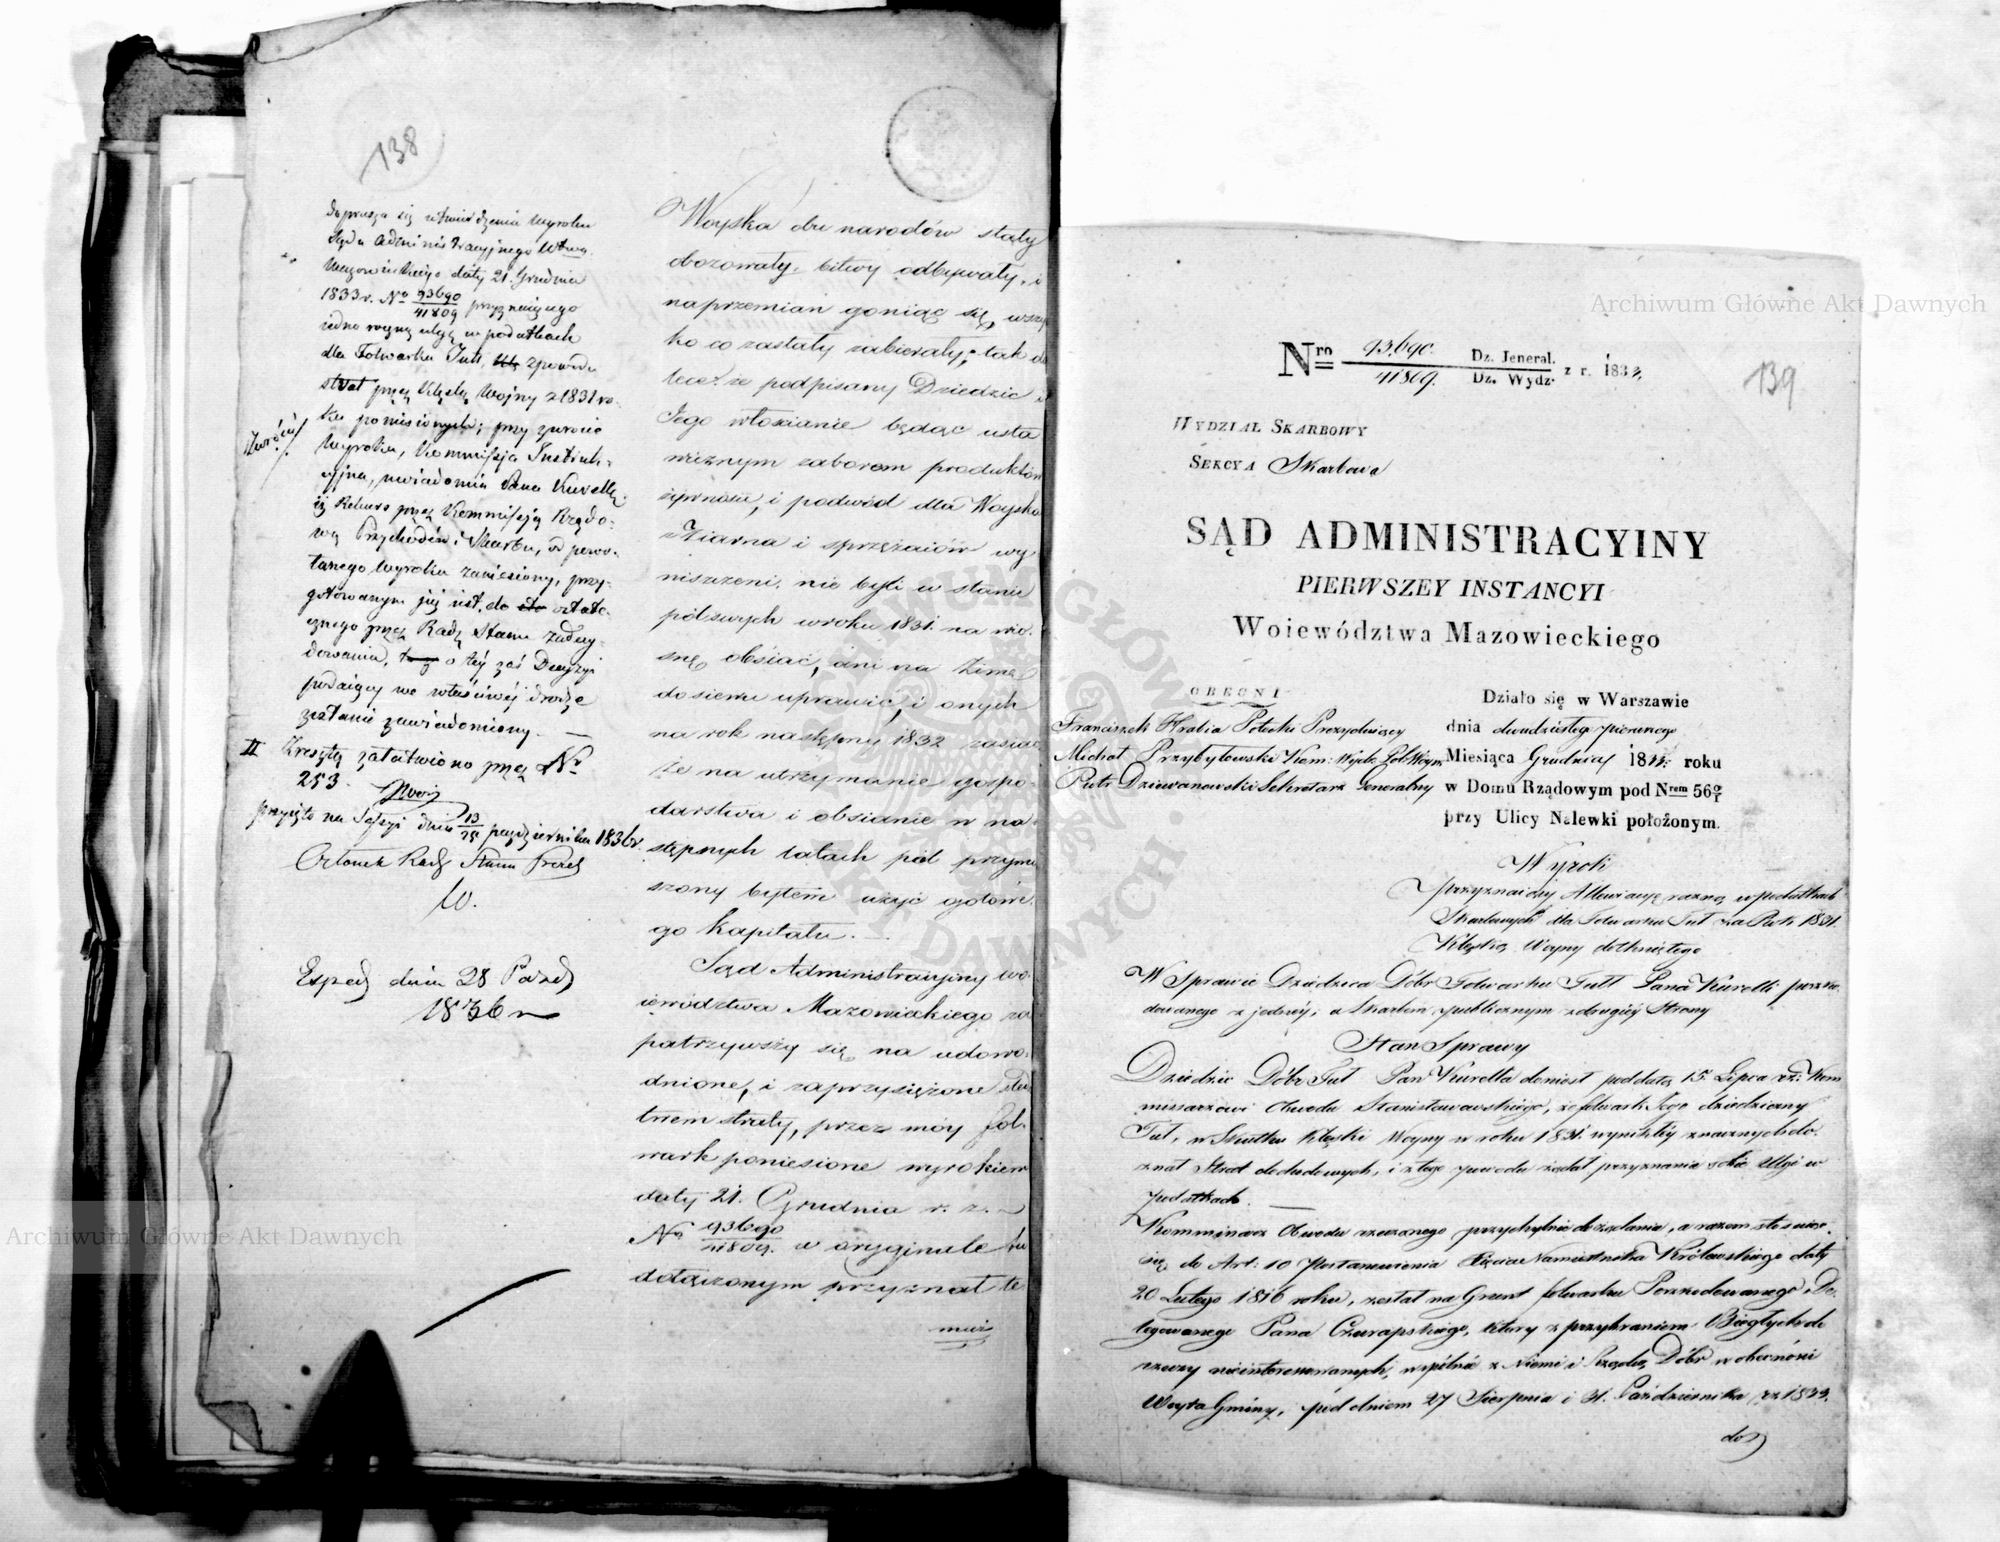 138
doprasza się utwierdzenia Wyroku
Sądu Administracyjnego Wtwa
Mazowieckiego daty 21. Grudnia
1833 r. No 93690/41809 przyznaiącego
iedno roczną ulgę w podatkach
dla Folwarku Tutt, z powodu
strat przez klęskę Wojny z 1831 ro-
ku poniesionych; przy zwrocie
Wyroku, Kommissja Instruk-
cyjna, uwiadomia Pana Kurellę
iż Rekurs przez Kommissją Rządo-
wą Przychodów i Skarbu, od powo-
łanego Wyroku zaniesiony, przy-
gotowanym już iest, do osta-
cznego przez Radę Stanu zadecy-
dowania, o téy zaś Decyzyi
podaiący we właściwéj drodze
zostanie zawiadomiony. —
Zwrócić
II Zresztą załatwiono przez No
253.
przyięto na Sessyi dnia 13/25 października 1836 r.
Członek Rady Stanu Prezes
W.
Exped dnia 28 Paźd
1836 r
Woyska obu narodów stały
obozowały, bitwy odbywały, i
naprzemian goniąc się, wszy
ko co zastały zabierały; tak da
lece że podpisany Dziedzic i
Jego włościanie będąc usta
wicznym zaborem produktów
żywności, i podwód dla Woyska
Ziarna i sprzężaiów wy
niszczeni, nie byli w stanie
pól swych w roku 1831. na wio-
snę obsiać, ani na zimę
do siewu uprawić, i onych
na rok następny 1832 zasiać
że na utrzymanie gospo-
darstwa i obsianie w na-
stępnych latach pól przymu
szony byłem użyć gotowe-
go kapitału. —
Sąd Administracyjny wo-
iewództwa Mazowieckiego za
patrzywszy się na udowo-
dnione, i zaprzysiężone
straty, przez móy fol-
wark poniesione wyrokiem
daty 21. Grudnia r. z.
No 93690/41809. w oryginale tu
dołączonym przyznał te
muż
Nro 93,690./41809. Dz. Jeneral./Dz. Wydz. z r. 1833,
139
WYDZIAŁ SKARBOWY
SEKCYA Skarbowa
SĄD ADMINISTRACYINY
PIERWSZEY INSTANCYI
Woiewództwa Mazowieckiego
OBECNI
Franciszek Hrabia Potocki Prezyduiący
Michał Przybyłowski Kom: Wydz. Pol. Woyw
Piotr Dziewanowski Sekretarz Generalny
Działo się w Warszawie
dnia dwudziestego pierwszego
Miesiąca Grudnia 1833. roku
w Domu Rządowym pod Nrem 560/1
przy Ulicy Nalewki położonym.
Wyrok
przyznaiący Allewiacyę roczną w podatkach
Skarbowych dla Folwarku Tut za Rok 1831.
Klęską Woyny dotkniętego
W Sprawie Dziedzica Dóbr Folwarku Tutt Pana Kurelli poszko-
dowanego z jednéy, a Skarbem publicznym z drugiéy Strony
Stan Sprawy
Dziedzic Dóbr Tut Pan Kurella doniosł pod datą 15 Lipca rz: Kom
missarzowi Obwodu Stanisławowskiego, że folwark Jego dziedziczny
Tut, w Skutku klęski Woyny w roku 1831. wynikłéy znacznych do-
znał Strat, i z tego powodu żądał przyznania sobie Ulgi w
podatkach. —
Kommissarz Obwodu rzeczonego przychylnie do żądania, a razem stosuiąc
się do Art: 10 Postanowienia Xięcia Namiestnika Królewskiego daty
20 Lutego 1816 roku, zesłał na Grunt folwarku Poszkodowanego, De-
legowanego Pana Czurapskiego, który z przybraniem Biegłych do
rzeczy nieinteresowanych, wspólnie z Niemi i Rządcą Dóbr w obecności
Woyta Gminy, pod dniem 27 Sierpnia i 31. Października rz 1833.
do
Archiwum Główne Akt Dawnych
Archiwum Główne Akt Dawnych
ARCHIWUM GŁÓWNE AKT DAWNYCH